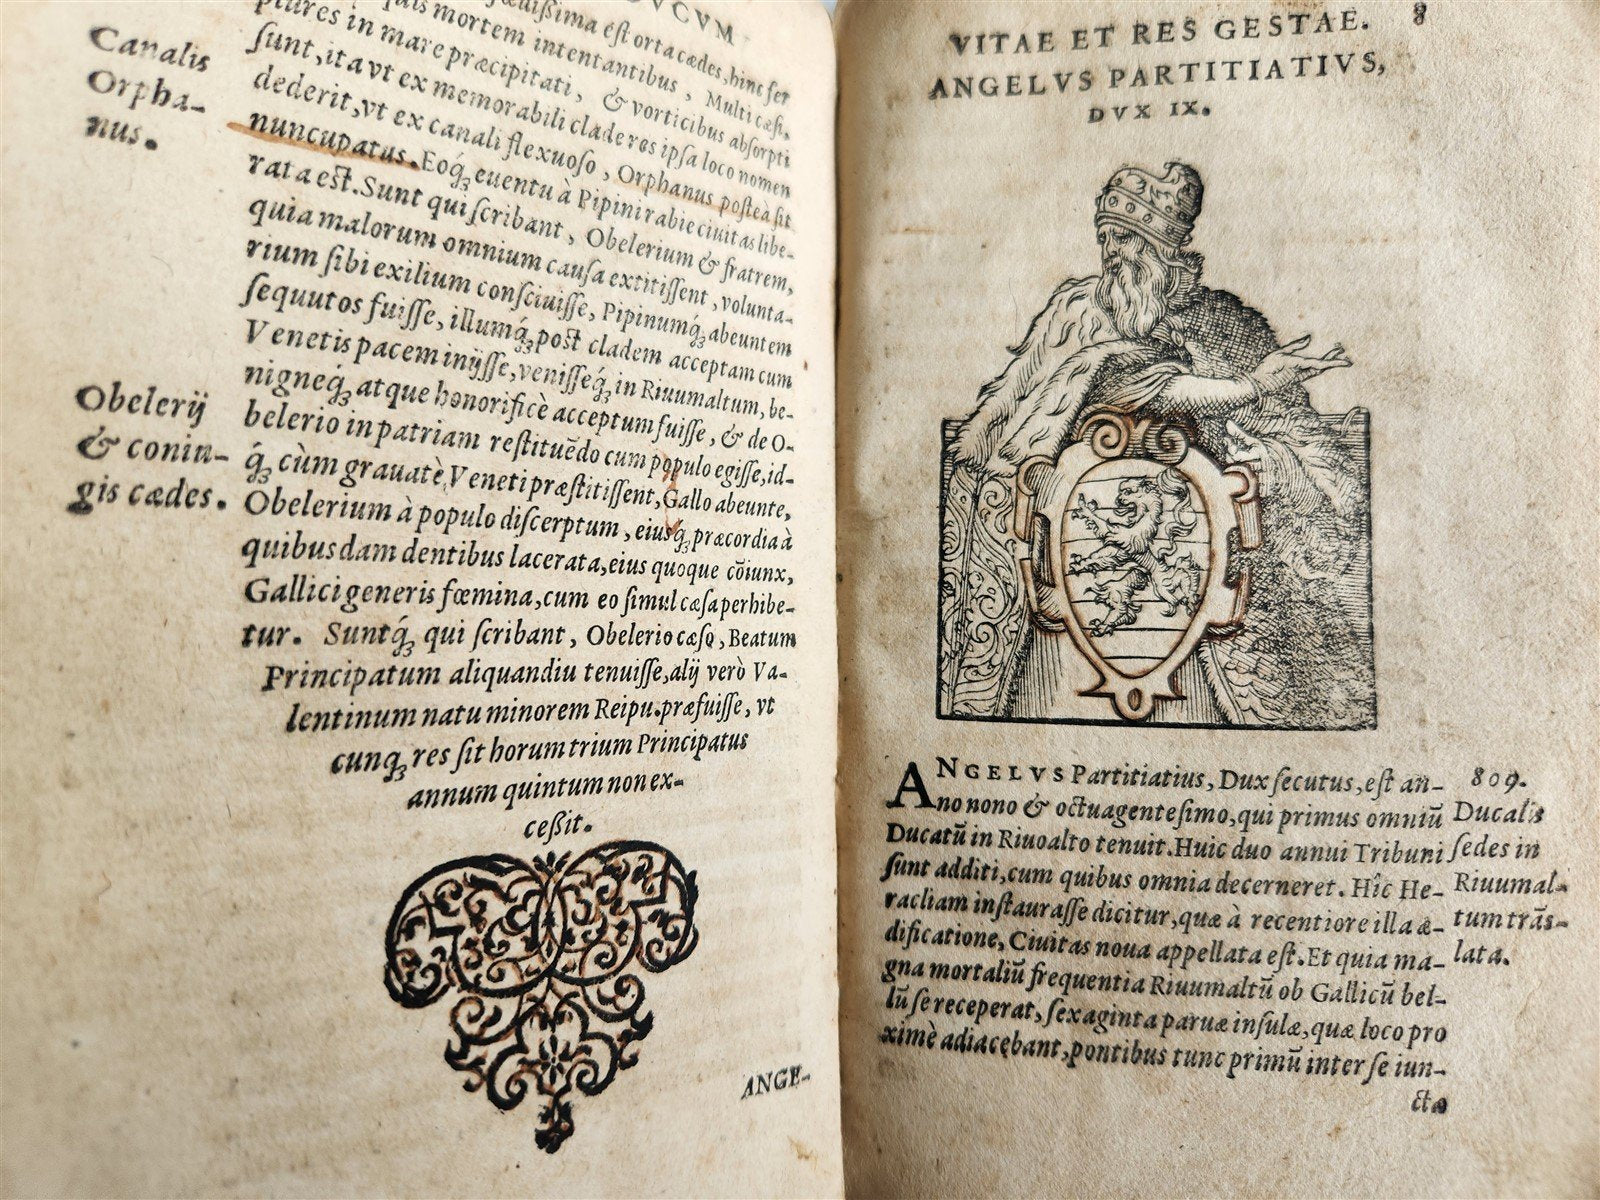 DVCVM
Canalis
Orpha-
nus.
Obelerij
& coniu-
gis cædes.
sæuißima est orta cædes, hinc fer
quis mortem intentantibus, Multi cæsi,
plures in mare præcipitati, & vorticibus absorpti
sunt, ita vt ex memorabili clade res ipsa loco nomen
dederit, vt ex canali flexuoso, Orphanus posteà sit
nuncupatus. Eoq́ꝫ euentu à Pipini rabie ciuitas libe-
rata est. Sunt qui scribant, Obelerium & fratrem,
quia malorum omnium causa extitissent, volunta-
rium sibi exilium consciuisse, Pipinumq́ꝫ abeuntem
sequutos fuisse, illumq́ꝫ post cladem acceptam cum
Venetis pacem inijsse, venisseq́ꝫ in Riuumaltum, be-
nigneq́ꝫ atque honorificè acceptum fuisse, & de O-
belerio in patriam restituẽdo cum populo egisse, id-
q́ꝫ cùm grauatè Veneti præstitissent, Gallo abeunte,
Obelerium à populo discerptum, eiusq́ꝫ præcordia à
quibusdam dentibus lacerata, eius quoque cõiunx,
Gallici generis fœmina, cum eo simul cæsa perhibe-
tur. Suntq́ꝫ qui scribant, Obelerio cæso, Beatum
Principatum aliquandiu tenuisse, alij verò Va-
lentinum natu minorem Reipu. præfuisse, vt
cunqꝫ res sit horum trium Principatus
annum quintum non ex-
ceßit.
ANGE-
VITAE ET RES GESTAE. 8
ANGELVS PARTITIATIVS,
DVX IX.
ANGELVS Partitiatius, Dux secutus, est an-
no nono & octuagentesimo, qui primus omniũ
Ducatũ in Riuoalto tenuit. Huic duo annui Tribuni
sunt additi, cum quibus omnia decerneret. Hîc He-
racliam instaurasse dicitur, quæ à recentiore illa æ-
dificatione, Ciuitas noua appellata est. Et quia ma-
gna mortaliũ frequentia Riuumaltũ ob Gallicũ bel-
lũ se receperat, sexaginta paruæ insulæ, quæ loco pro
ximè adiacebant, pontibus tunc primũ inter se iun-
cta
809.
Ducalis
sedes in
Riuumal-
tum trãs-
lata.